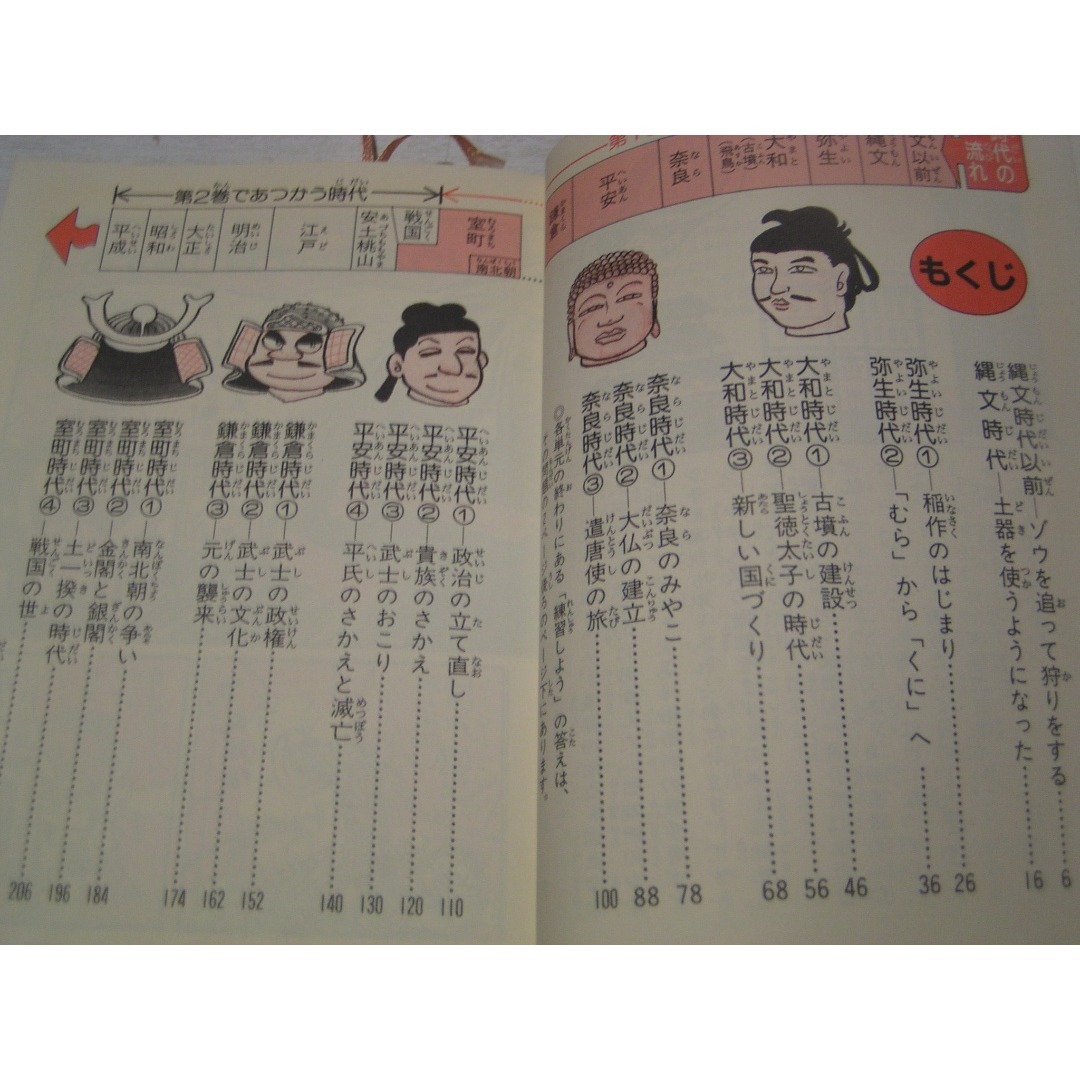 代の
流れ
文以前
縄文
弥生
大和
(古墳)
(飛鳥)
奈良
平安
鎌倉
もくじ
縄文時代以前―ゾウを追って狩りをする……6
縄文時代―土器を使うようになった……16
弥生時代①―稲作のはじまり……26
弥生時代②―「むら」から「くに」へ……36
大和時代①―古墳の建設……46
大和時代②―聖徳太子の時代……56
大和時代③―新しい国づくり……68
奈良時代①―奈良のみやこ……78
奈良時代②―大仏の建立……88
奈良時代③―遣唐使の旅……100
◎各単元の終わりにある「練習しよう」の答えは、
ページ下にあります。
第2巻であつかう時代
室町
南北朝
戦国
安土桃山
江戸
明治
大正
昭和
平成
平安時代①―政治の立て直し……110
平安時代②―貴族のさかえ……120
平安時代③―武士のおこり……130
平安時代④―平氏のさかえと滅亡……140
鎌倉時代①―武士の政権……152
鎌倉時代②―武士の文化……162
鎌倉時代③―元の襲来……174
室町時代①―南北朝の争い……184
室町時代②―金閣と銀閣……196
室町時代③―土一揆の時代……206
室町時代④―戦国の世……